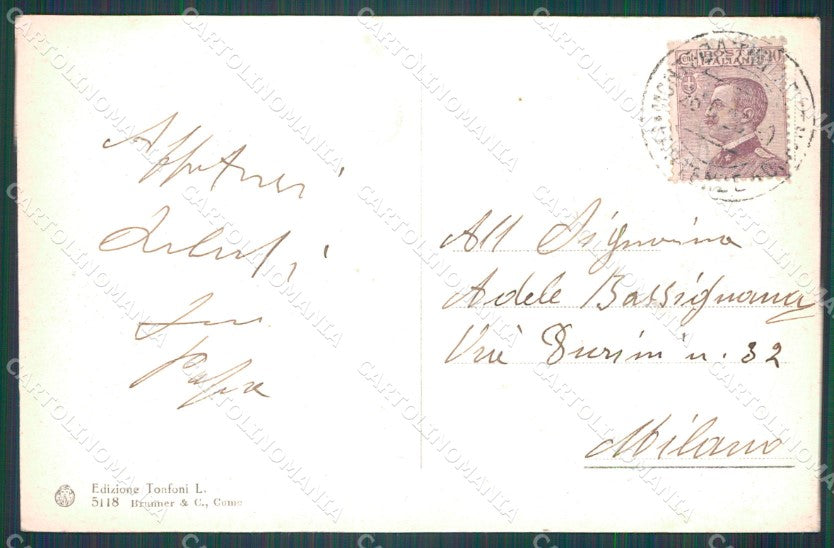 Affettuosi
saluti
Papa
All Signorina
Adele Bassignana
Via Durini n. 32
Milano
Edizione Tonfoni L.
5118 Brunner & C., Como
CARTOLINOMANIA